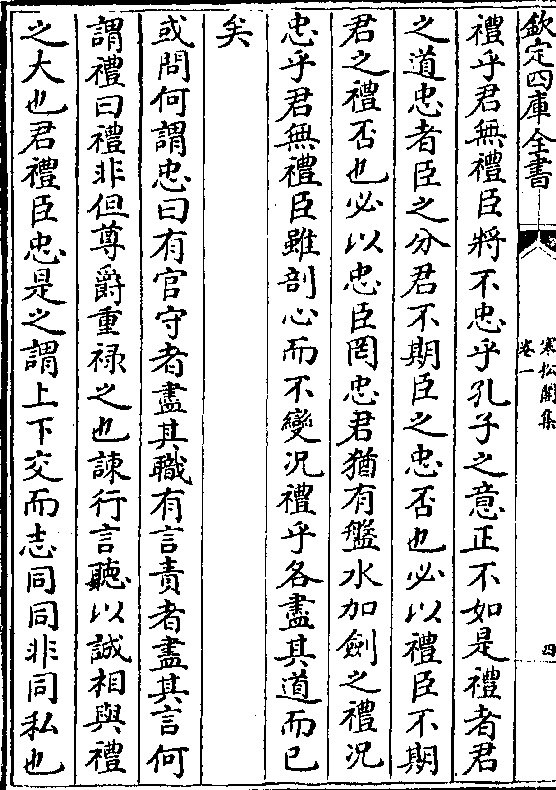 欽定四庫全書
寒松閣集
卷一
四
禮乎君無禮臣將不忠乎孔子之意正不如是禮者君
之道忠者臣之分君不期臣之忠否也必以禮臣不期
君之禮否也必以忠臣罔忠君猶有盤水加劍之禮況
忠乎君無禮臣雖剖心而不變况禮乎各盡其道而已
矣
或問何謂忠曰有官守者盡其職有言責者盡其言何
謂禮曰禮非但尊爵重禄之也諫行言聽以誠相與禮
之大也君禮臣忠是之謂上下交而志同同非同私也